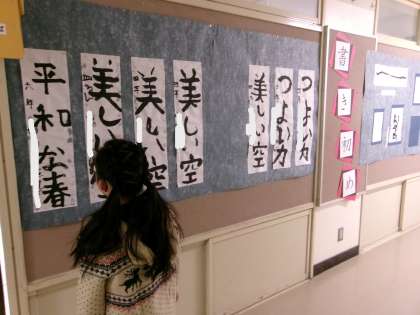 書き初め
つよい力
つよい力
美しい空
美しい空
美しい空
美しい
平和な春